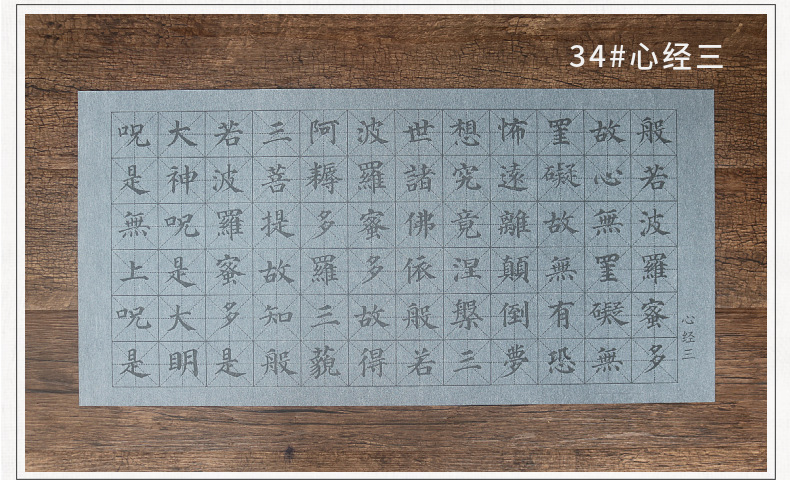 34#心经三
般若波羅蜜多
故心無罣礙無
罣礙故無有恐
怖遠離顛倒夢
想究竟涅槃三
世諸佛依般若
波羅蜜多故得
阿耨多羅三藐
三菩提故知般
若波羅蜜多是
大神呪是大明
呪是無上呪是
心经三